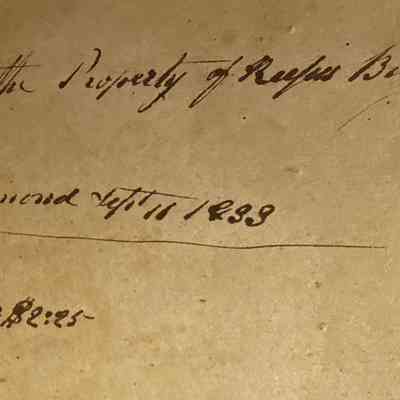 the Property of Reefus B
mond Sept 11 1833
$2:25